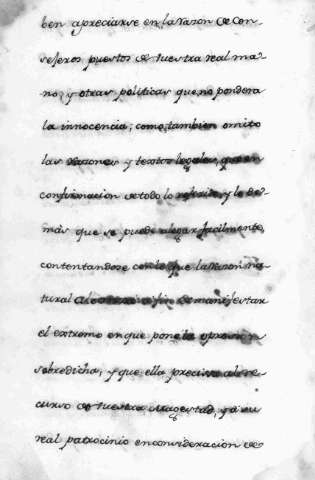 ben apreciarse en la razon de con-
sejeros puestos de vuestra real ma-
no, y otras politicas que no pondera
la innocencia, como tambien omito
las razones y textos legales, que en
confirmacion de todo lo referido, y lo de-
más que se puede alegar facilmente,
contentandose con lo que la razon na-
tural a fin de manifestar
el extremo en que pone la opresion
sobredicha, y que ella precisa al re-
curso de vuestra magestad, y a su
real patrocinio en consideracion de